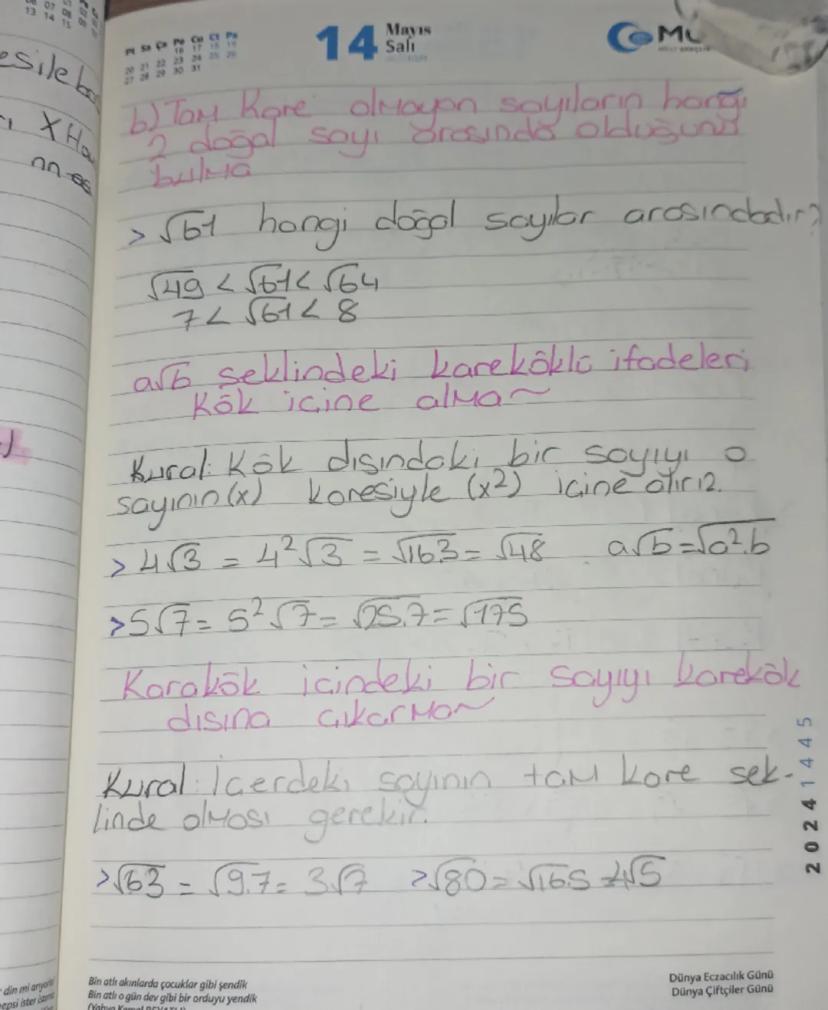 14 Mayıs
Salı
b) Tam Kare olmayan sayıların hangi
2 doğal sayı arasında olduğunu
bulma
> √61 hangi doğal sayılar arasındadır?
√49 < √61 < √64
7 < √61 < 8
a√b şeklindeki kareköklü ifadeleri
Kök içine alma~
Kural: Kök dışındaki bir sayıyı o
sayının (x) karesiyle (x²) içine atırız.
> 4√3 = 4²√3 = √16.3 = √48 a√b = √a².b
> 5√7 = 5²√7 = √25.7 = √175
Karakök içindeki bir sayıyı karekök
dışına çıkarma~
Kural: İçerdeki sayının tam kare şek-
linde olması gerekir.
> √63 = √9.7 = 3√7 > √80 = √16.5 = 4√5
2024 1445
Bin atlı akınlarda çocuklar gibi şendik
Bin atlı o gün dev gibi bir orduyu yendik
Dünya Eczacılık Günü
Dünya Çiftçiler Günü